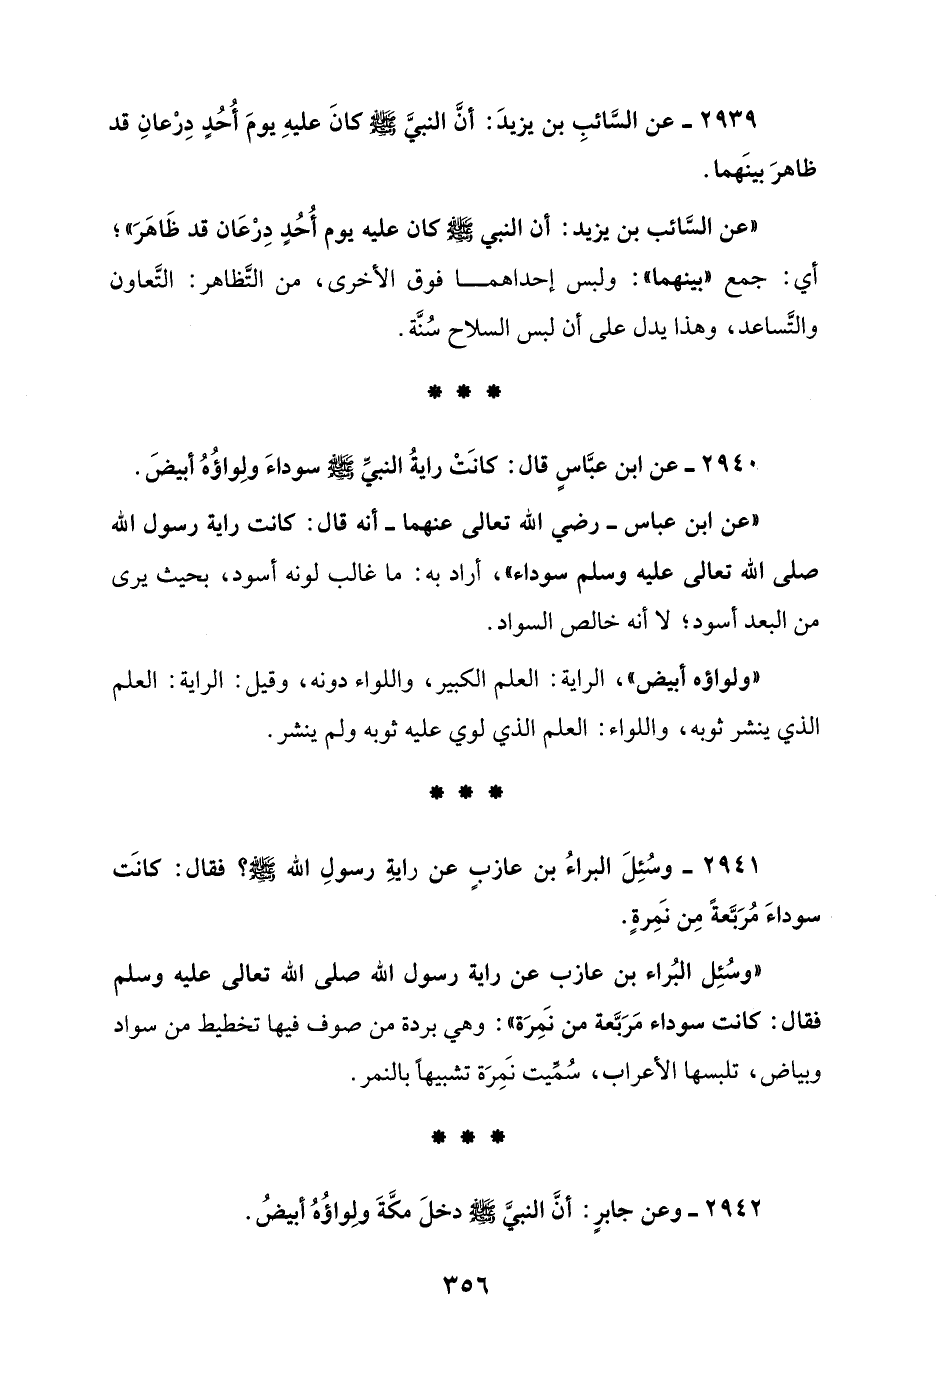 ٢٩٣٩ ـ عن السَّائبِ بن يزيدَ: أنَّ النبيَّ ﷺ كانَ عليهِ يومَ أُحُدٍ دِرْعانِ قد
ظاهرَ بينَهما.
«عن السَّائب بن يزيد: أن النبي ﷺ كان عليه يوم أُحُدٍ دِرْعَان قد ظَاهَرَ»؛
أي: جمع «بينهما»: ولبس إحداهمـــا فوق الأخرى، من التَّظاهر: التَّعاون
والتَّساعد، وهذا يدل على أن لبس السلاح سُنَّة.
* * *
٢٩٤٠ ـ عن ابن عبَّاسٍ قال: كانَتْ رايةُ النبيِّ ﷺ سوداءَ ولِواؤُهُ أبيضَ.
«عن ابن عباس ـ رضي الله تعالى عنهما ـ أنه قال: كانت راية رسول الله
صلى الله تعالى عليه وسلم سوداء»، أراد به: ما غالب لونه أسود، بحيث يرى
من البعد أسود؛ لا أنه خالص السواد.
«ولواؤه أبيض»، الراية: العلم الكبير، واللواء دونه، وقيل: الراية: العلم
الذي ينشر ثوبه، واللواء: العلم الذي لوي عليه ثوبه ولم ينشر.
* * *
٢٩٤١ ـ وسُئِلَ البراءُ بن عازبٍ عن رايةِ رسولِ الله ﷺ؟ فقال: كانَت
سوداءَ مُرَبَّعةً مِن نَمِرةٍ.
«وسُئِل البُراء بن عازب عن راية رسول الله صلى الله تعالى عليه وسلم
فقال: كانت سوداء مَرَبَّعة من نَمِرَة»: وهي بردة من صوف فيها تخطيط من سواد
وبياض، تلبسها الأعراب، سُمِّيت نَمِرَة تشبيهاً بالنمر.
* * *
٢٩٤٢ ـ وعن جابرٍ: أنَّ النبيَّ ﷺ دخلَ مكَّةَ ولِواؤُهُ أبيضُ.
٣٥٦